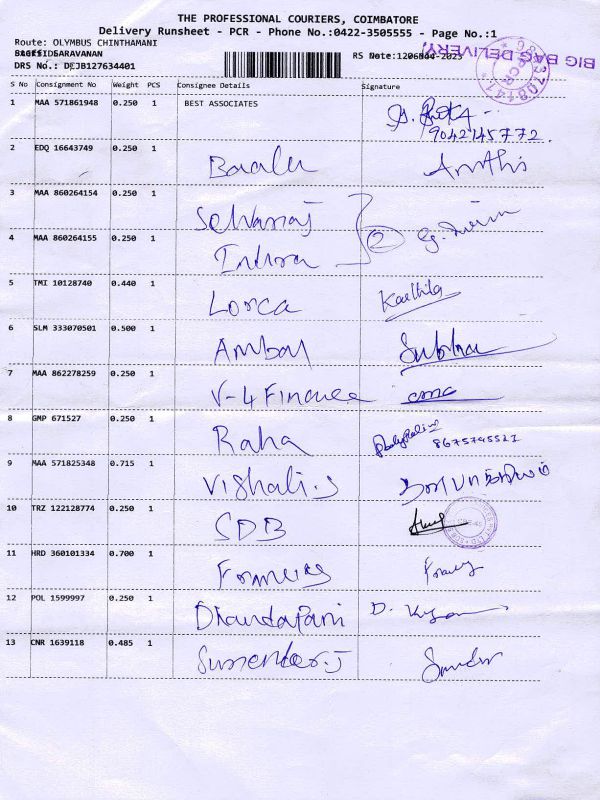 THE PROFESSIONAL COURIERS, COIMBATORE
Delivery Runsheet - PCR - Phone No.:0422-3505555 - Page No.:1
Route: OLYMBUS CHINTHAMANI
DRS No.: DEJB127634401
BIG BAG DELIVERY
S No Consignment No Weight PCS Consignee Details Signature
1 MAA 571861948 0.250 1 BEST ASSOCIATES
9042745772
2 EDQ 16643749 0.250 1 Baalu
3 MAA 860264154 0.250 1 Selvaraj
4 MAA 860264155 0.250 1 Indira
5 TMI 10128740 0.440 1 Lorca Karthika
6 SLM 333070501 0.500 1 Ambal
7 MAA 862278259 0.250 1 V-4 Finance
8 GMP 671527 0.250 1 Raha 8675745521
9 MAA 571825348 0.715 1 Vishali.s
10 TRZ 122128774 0.250 1 SDB
11 HRD 360101334 0.700 1
12 POL 1599997 0.250 1 Dhandapani
13 CNR 1639118 0.485 1 Surrender.J